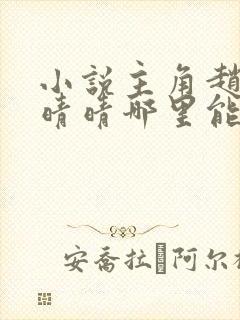 小说主角趙
晴晴哪里能
安喬拉 阿尔